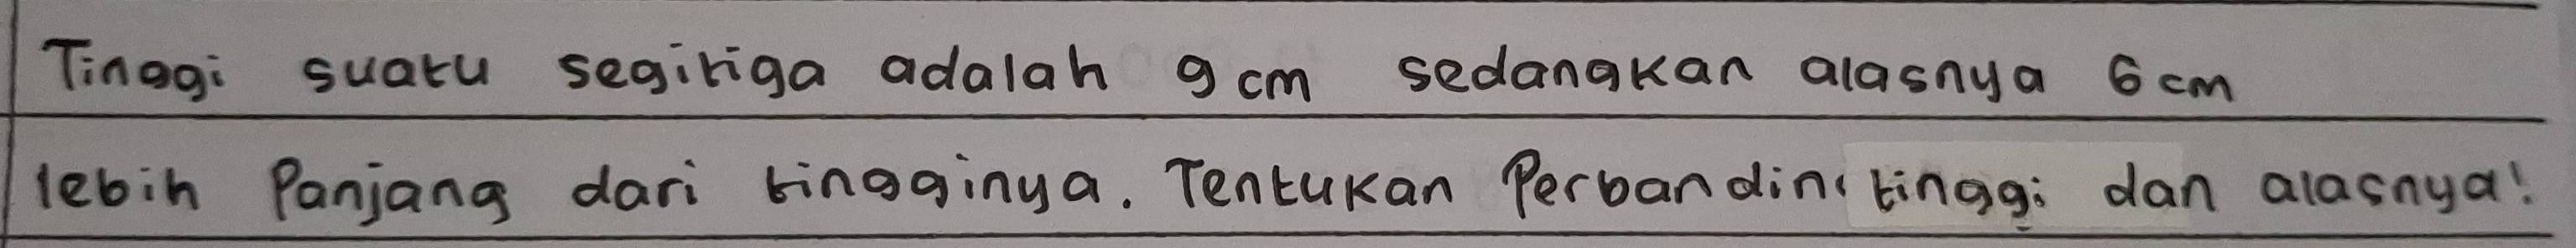 Tinggi suatu segitiga adalah 9 cm sedangkan alasnya 6 cm
lebih Panjang dari tingginya. Tentukan tinggi dan alasnya!